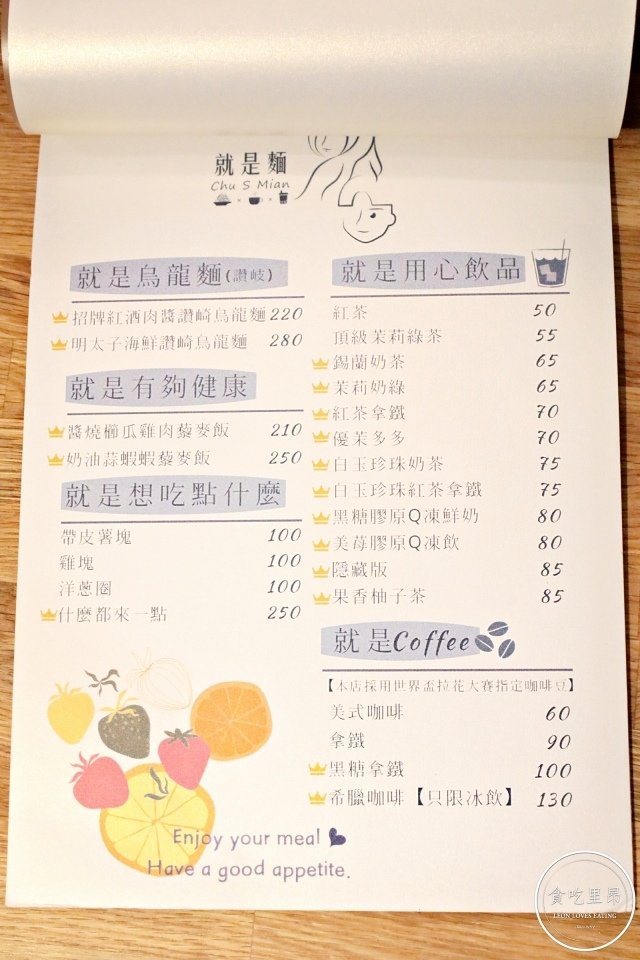 就是麵
Chu S Mian
就是烏龍麵(讚岐)
招牌紅酒肉醬讚崎烏龍麵 220
明太子海鮮讚崎烏龍麵 280
就是有夠健康
醬燒櫛瓜雞肉藜麥飯 210
奶油蒜蝦蝦藜麥飯 250
就是想吃點什麼
帶皮薯塊 100
雞塊 100
洋蔥圈 100
什麼都來一點 250
就是用心飲品
紅茶 50
頂級茉莉綠茶 55
錫蘭奶茶 65
茉莉奶綠 65
紅茶拿鐵 70
優茉多多 70
白玉珍珠奶茶 75
白玉珍珠紅茶拿鐵 75
黑糖膠原Q凍鮮奶 80
美莓膠原Q凍飲 80
隱藏版 85
果香柚子茶 85
就是Coffee
【本店採用世界盃拉花大賽指定咖啡豆】
美式咖啡 60
拿鐵 90
黑糖拿鐵 100
希臘咖啡【只限冰飲】 130
Enjoy your meal
Have a good appetite.
貪吃里昂
LEON LOVES EATING